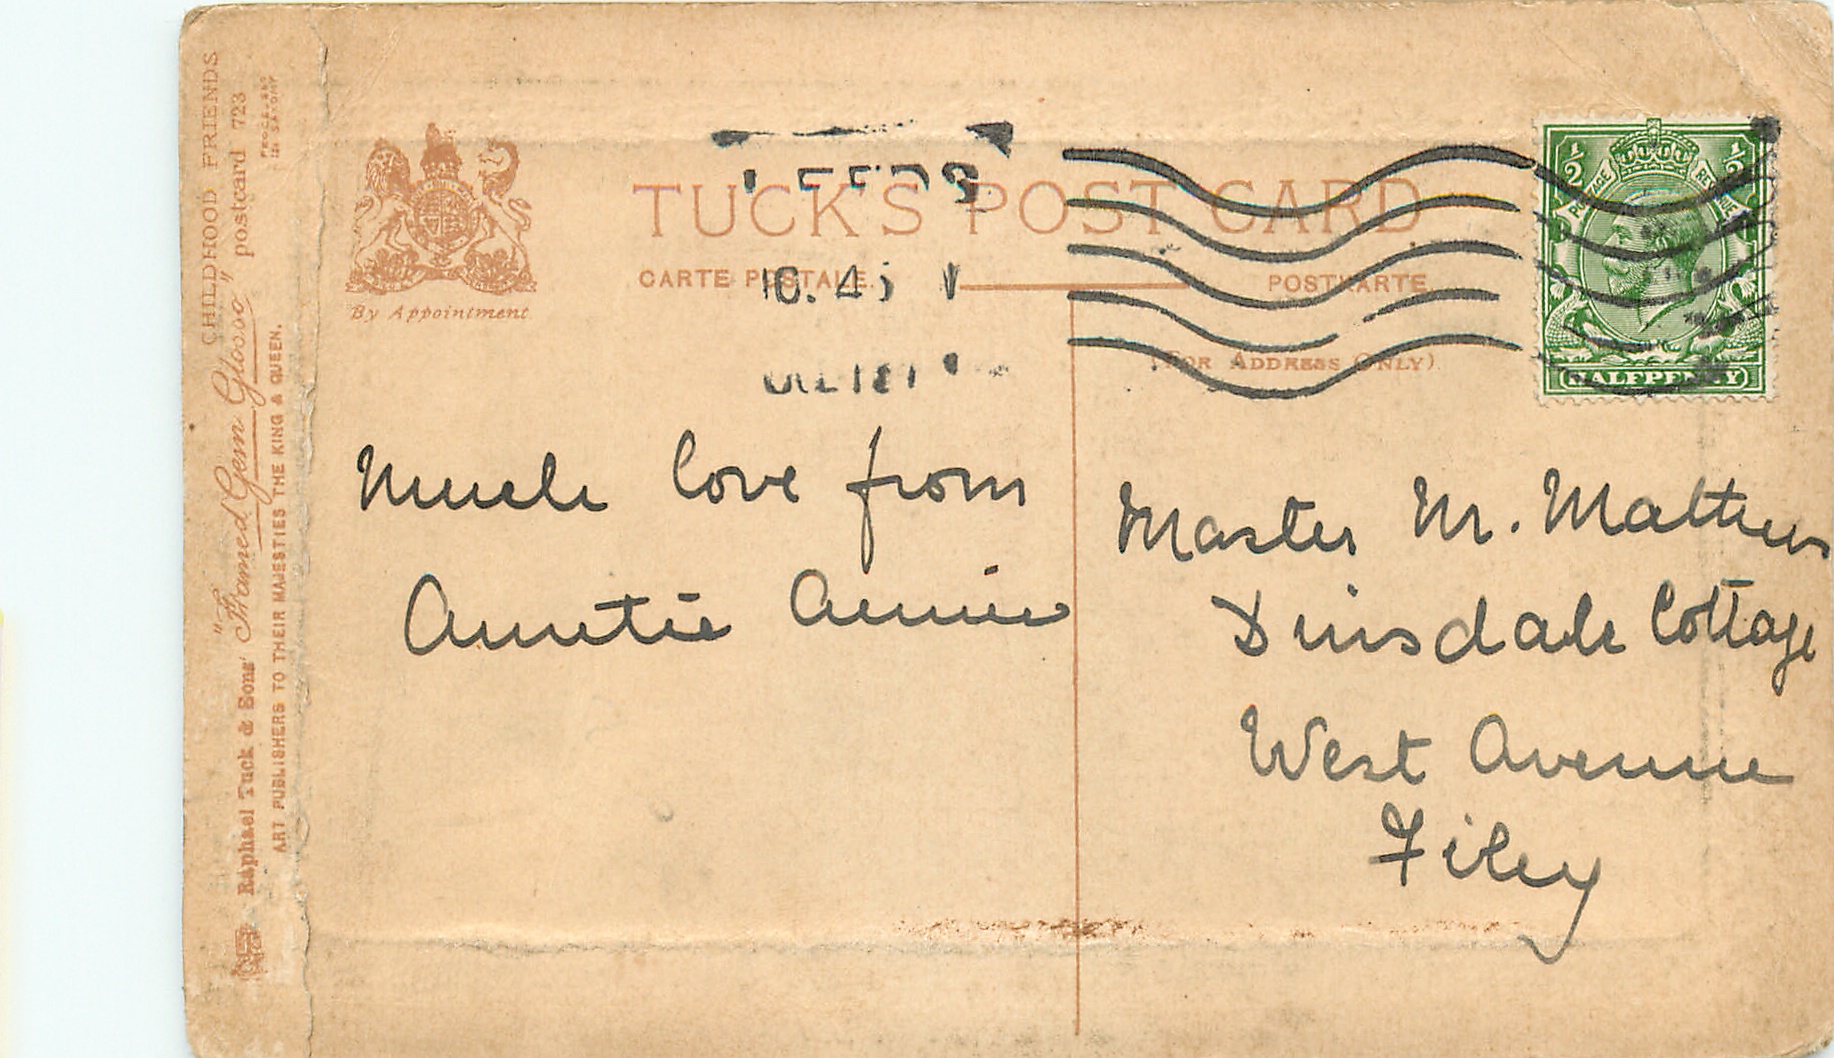 CHILDHOOD FRIENDS
Raphael Tuck & Sons' "Framed Gem Glosso" postcard 723
ART PUBLISHERS TO THEIR MAJESTIES THE KING & QUEEN.
By Appointment
TUCK'S POST CARD
CARTE POSTALE.
POSTKARTE.
(FOR ADDRESS ONLY)
LEEDS
10.45
½ ½
POSTAGE REVENUE
HALFPENNY
Much love from
Auntie Annie
Master M. Matthews
Dinsdale Cottage
West Avenue
Filey